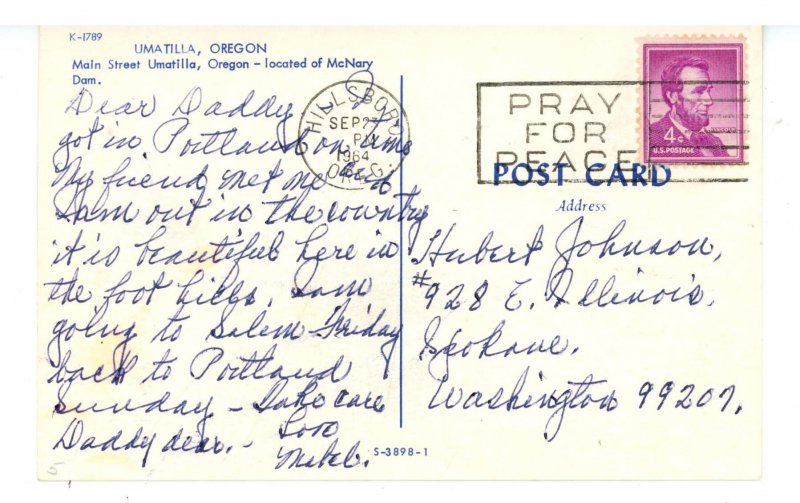 K-1789
UMATILLA, OREGON
Main Street Umatilla, Oregon – located of McNary
Dam.
Dear Daddy
got in Portland on time
My friend met me and
I am out in the country
it is beautiful here in
the foot hills. I am
going to Salem Friday
back to Portland
Sunday – Take care
Daddy dear. –
Love
Mabel.
HILLSBORO
SEP
PM
1964
OREG.
PRAY
FOR
PEACE
LINCOLN
4¢
U.S. POSTAGE
POST CARD
Address
Hubert Johnson,
#928 E. Illinois,
Spokane.
Washington 99207.
S-3898-1
5